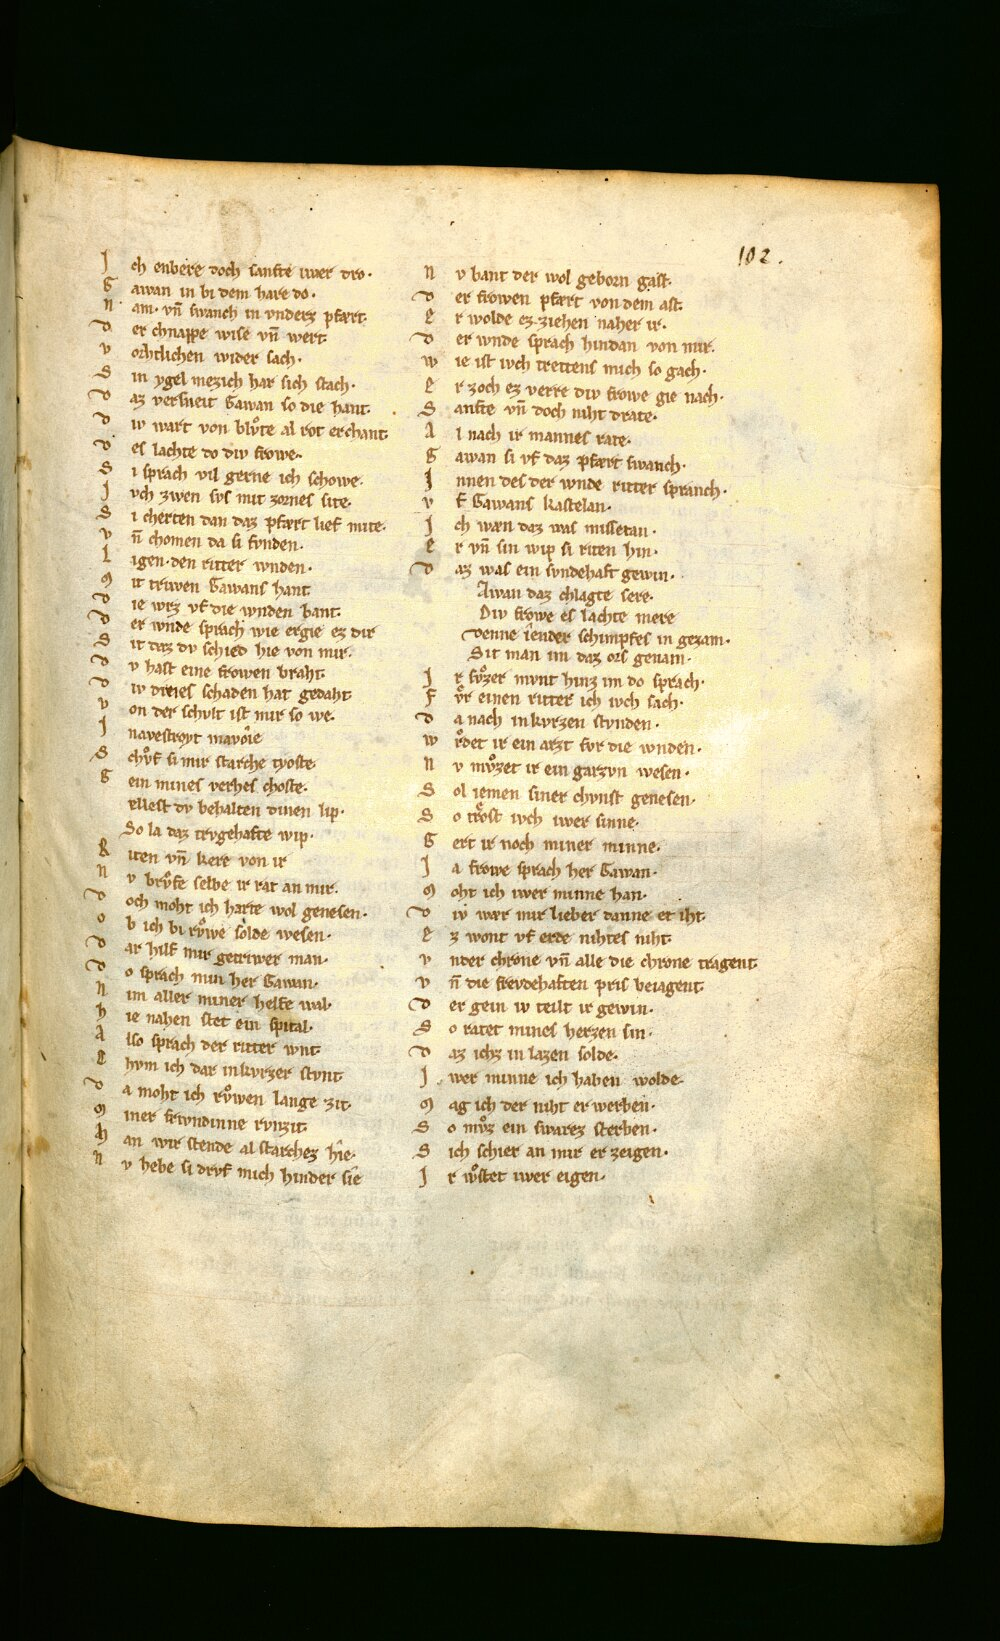 102.
J ch enbere doch sanfte iwer dro·
G awan in bi dem hare do·
n am· vn̄ swanch in vnderz pfært·
d er chnappe wise vn̄ wert·
v orhtlichen wider sach·
S in ygel mezich har sich stach·
d az versneit Gawan so die hant·
d iv wart von blv̊te al rot erchant·
d es lachte do div frowe·
S i sprach vil gerne ich schowe·
J vch zwen svs mit zornes site·
S i cherten dan daz pfært lief mite·
v n̄ chomen da si fvnden·
L igen·den ritter wnden·
M it triwen Gawans hant
d ie wrz vf die wnden bant·
d er wnde sprach wie ergie ez dir
S it daz dv schied hie von mir·
d v hast eine frowen braht·
d iv dieies schaden hat gedaht
v on der schvlt ist mir so we·
J navestroyt mavoîe
S chv̊f si mir starche tyoste·
G ein mines verhes choste·
vllest dv behalten dinen lip·
So la daz trvgehafte wip·
R iten vn̄ kere von ir
n v brv̊fe selbe ir rat an mir·
d och moht ich harte wol genesen·
o b ich bi rv̊we solde wesen·
d ar hilf mir getriwer man·
d o sprach min her Gawan·
n im aller miner helfe wal·
h ie nahen stet ein spital·
A lso sprach der ritter wnt·
E hvm ich dar inkvrzer stvnt
d a moht ich rv̊wen lange zit·
M iner frivndinne rvnzit·
h an wir stende al starchez hîe·
n v hebe si drvf mich hinder sie
n v bant der wol geborn gast·
d er frowen pfært von dem ast·
E r wolde ez·ziehen naher ir·
d er wnde sprach hindan von mir·
w ie ist ivch trettens mich so gach·
E r zoch ez verre div frowe gie nach·
S anfte vn̄ doch niht drate·
A l nach ir mannes rate·
G awan si vf daz pfært swanch·
J nnen des der wnde ritter spranch·
v f Gawans kastelan·
J ch wæn daz was missetan·
E r vn̄ sin wip si riten hin·
d az was ein svndehaft gewin·
Awan daz chlagte sere·
Div frowe es lachte mere
denne iender schimpfes in gezam·
Sit man im daz ors genam·
J r sv̊zer mvnt hinz im do sprach·
F v̊r einen ritter ich ivch sach·
d a nach inkvrzen stvnden·
w v̊rdet ir ein arzt fvr die wnden·
n v mv̊zet ir ein garzvn wesen·
S ol iemen siner chvnst genesen·
S o trôst ivch iwer sinne·
G ert ir noch miner minne·
J a frowe sprach her Gawan·
M oht ich iwer minne han·
d iv wær mir lieber danne et iht·
E z wont vf erde nihtes niht·
v nder chrone vn̄ alle die chrone tragent
v n̄ die frevdehaften pris beiagent·
d er gein iv teilt ir gewin·
S o ratet mines herzen sin·
d az ichz in lazen solde·
J wer minne ich haben wolde·
M ag ich der niht erwerben·
S o mv̊z ein swarez sterben·
S ich schier an mir er zeigen·
J r wv̊stet iwer eigen·